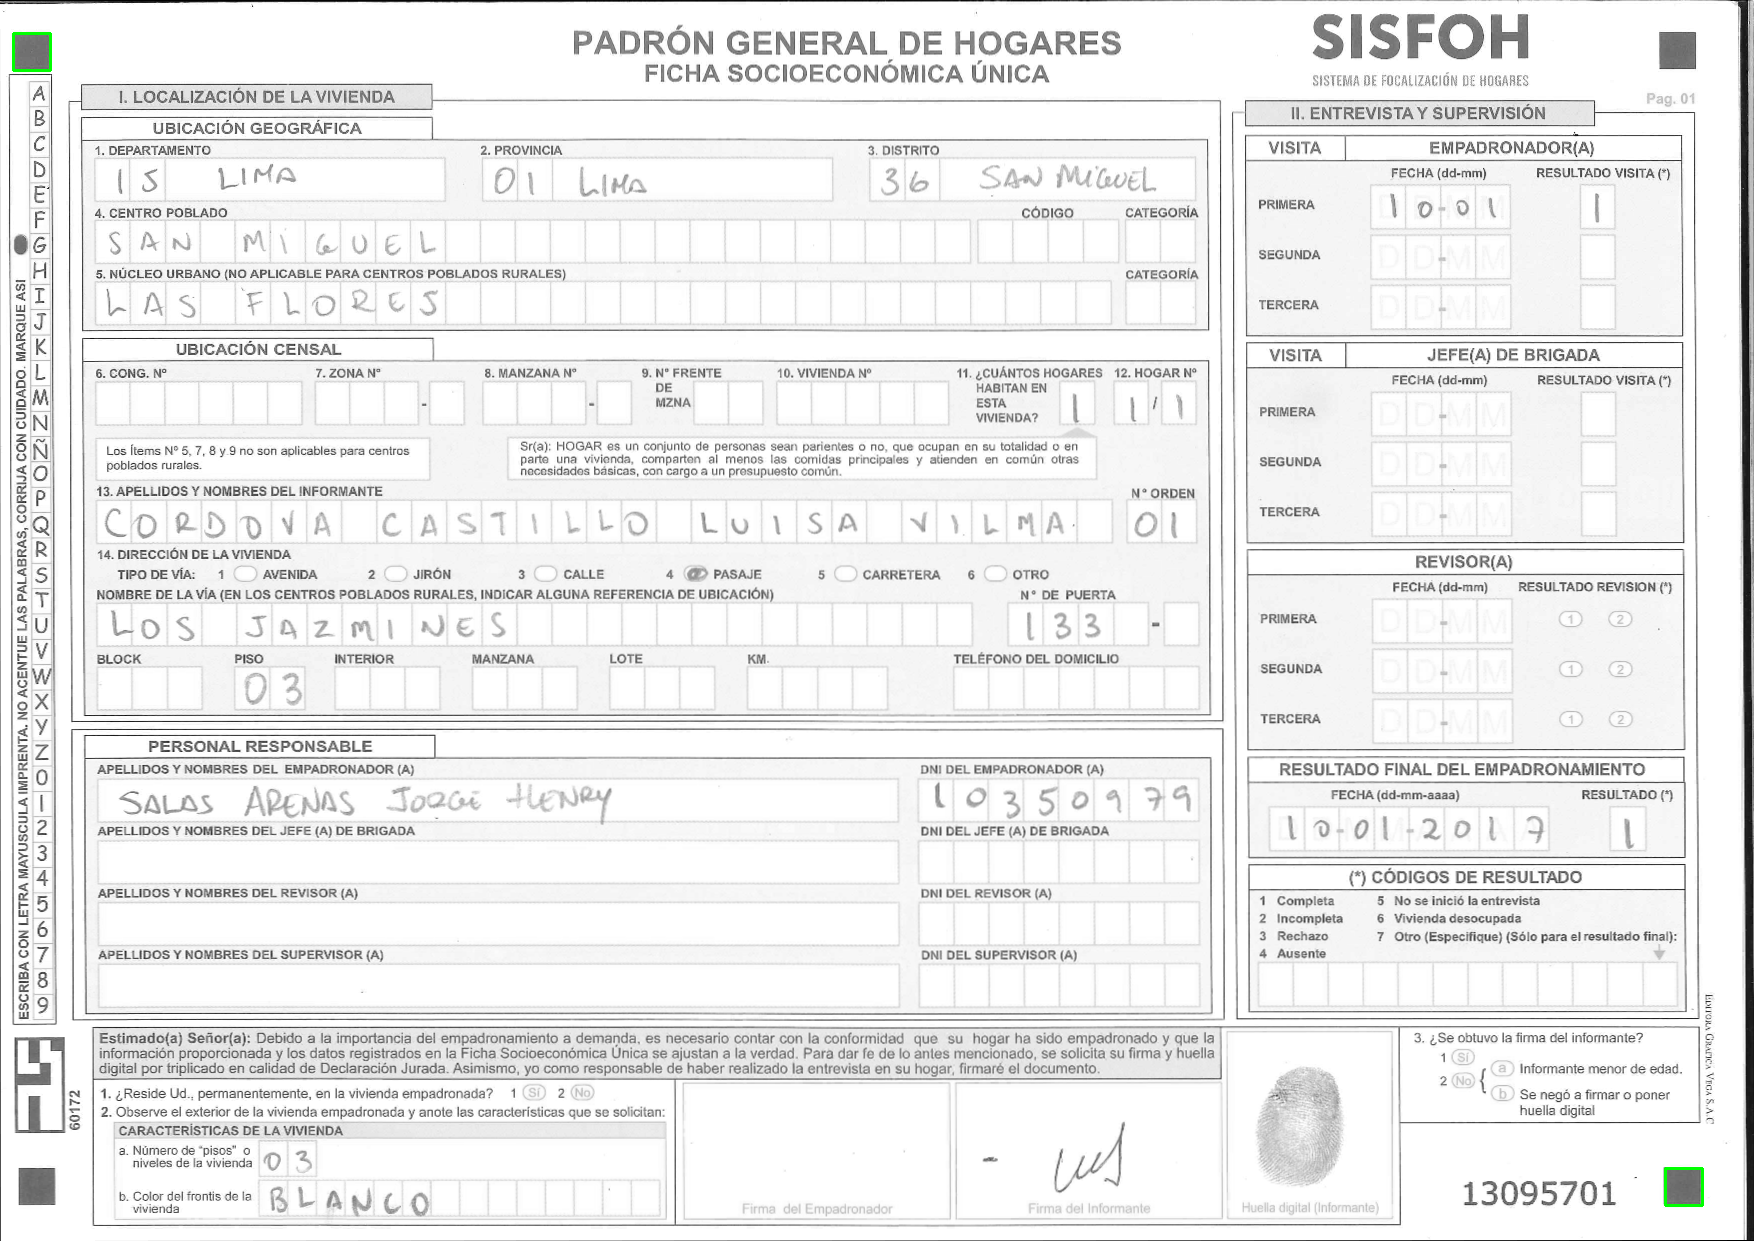 PADRÓN GENERAL DE HOGARES
FICHA SOCIOECONÓMICA ÚNICA
SISFOH
SISTEMA DE FOCALIZACIÓN DE HOGARES
Pag. 01
ESCRIBA CON LETRA MAYUSCULA IMPRENTA. NO ACENTUE LAS PALABRAS, CORRIJA CON CUIDADO. MARQUE ASI
A B C D E F G H I J K L M N Ñ O P Q R S T U V W X Y Z 0 1 2 3 4 5 6 7 8 9
I. LOCALIZACIÓN DE LA VIVIENDA
UBICACIÓN GEOGRÁFICA
1. DEPARTAMENTO 2. PROVINCIA 3. DISTRITO
15 LIMA 01 LIMA 36 SAN MIGUEL
4. CENTRO POBLADO CÓDIGO CATEGORÍA
SAN MIGUEL
5. NÚCLEO URBANO (NO APLICABLE PARA CENTROS POBLADOS RURALES) CATEGORÍA
LAS FLORES
UBICACIÓN CENSAL
6. CONG. Nº 7. ZONA Nº 8. MANZANA Nº 9. Nº FRENTE DE MZNA 10. VIVIENDA Nº 11. ¿CUÁNTOS HOGARES HABITAN EN ESTA VIVIENDA? 1 12. HOGAR Nº 1 / 1
Los Ítems Nº 5, 7, 8 y 9 no son aplicables para centros poblados rurales.
Sr(a): HOGAR es un conjunto de personas sean parientes o no, que ocupan en su totalidad o en
parte una vivienda, comparten al menos las comidas principales y atienden en común otras
necesidades básicas, con cargo a un presupuesto común.
13. APELLIDOS Y NOMBRES DEL INFORMANTE Nº ORDEN
CORDOVA CASTILLO LUISA VILMA 01
14. DIRECCIÓN DE LA VIVIENDA
TIPO DE VÍA: 1 AVENIDA 2 JIRÓN 3 CALLE 4 PASAJE 5 CARRETERA 6 OTRO
NOMBRE DE LA VÍA (EN LOS CENTROS POBLADOS RURALES, INDICAR ALGUNA REFERENCIA DE UBICACIÓN) Nº DE PUERTA
LOS JAZMINES 133 -
BLOCK PISO INTERIOR MANZANA LOTE KM. TELÉFONO DEL DOMICILIO
03
PERSONAL RESPONSABLE
APELLIDOS Y NOMBRES DEL EMPADRONADOR (A) DNI DEL EMPADRONADOR (A)
SALAS ARENAS JORGE HENRY 10350979
APELLIDOS Y NOMBRES DEL JEFE (A) DE BRIGADA DNI DEL JEFE (A) DE BRIGADA
APELLIDOS Y NOMBRES DEL REVISOR (A) DNI DEL REVISOR (A)
APELLIDOS Y NOMBRES DEL SUPERVISOR (A) DNI DEL SUPERVISOR (A)
II. ENTREVISTA Y SUPERVISIÓN
VISITA EMPADRONADOR(A)
FECHA (dd-mm) RESULTADO VISITA (*)
PRIMERA 10-01 1
SEGUNDA DD-MM
TERCERA DD-MM
VISITA JEFE(A) DE BRIGADA
FECHA (dd-mm) RESULTADO VISITA (*)
PRIMERA DD-MM
SEGUNDA DD-MM
TERCERA DD-MM
REVISOR(A)
FECHA (dd-mm) RESULTADO REVISION (*)
PRIMERA DD-MM 1 2
SEGUNDA DD-MM 1 2
TERCERA DD-MM 1 2
RESULTADO FINAL DEL EMPADRONAMIENTO
FECHA (dd-mm-aaaa) RESULTADO (*)
10-01-2017 1
(*) CÓDIGOS DE RESULTADO
1 Completa 5 No se inició la entrevista
2 Incompleta 6 Vivienda desocupada
3 Rechazo 7 Otro (Especifique) (Sólo para el resultado final):
4 Ausente
Estimado(a) Señor(a): Debido a la importancia del empadronamiento a demanda, es necesario contar con la conformidad que su hogar ha sido empadronado y que la
información proporcionada y los datos registrados en la Ficha Socioeconómica Única se ajustan a la verdad. Para dar fe de lo antes mencionado, se solicita su firma y huella
digital por triplicado en calidad de Declaración Jurada. Asimismo, yo como responsable de haber realizado la entrevista en su hogar, firmaré el documento.
1. ¿Reside Ud., permanentemente, en la vivienda empadronada? 1 Sí 2 No
2. Observe el exterior de la vivienda empadronada y anote las características que se solicitan:
CARACTERÍSTICAS DE LA VIVIENDA
a. Número de "pisos" o niveles de la vivienda 03
b. Color del frontis de la vivienda BLANCO
Firma del Empadronador
Firma del Informante
Huella digital (Informante)
3. ¿Se obtuvo la firma del informante?
1 Sí
2 No
a Informante menor de edad.
b Se negó a firmar o poner huella digital
13095701
60172
EDITORA GRAFICA VEGA S.A.C